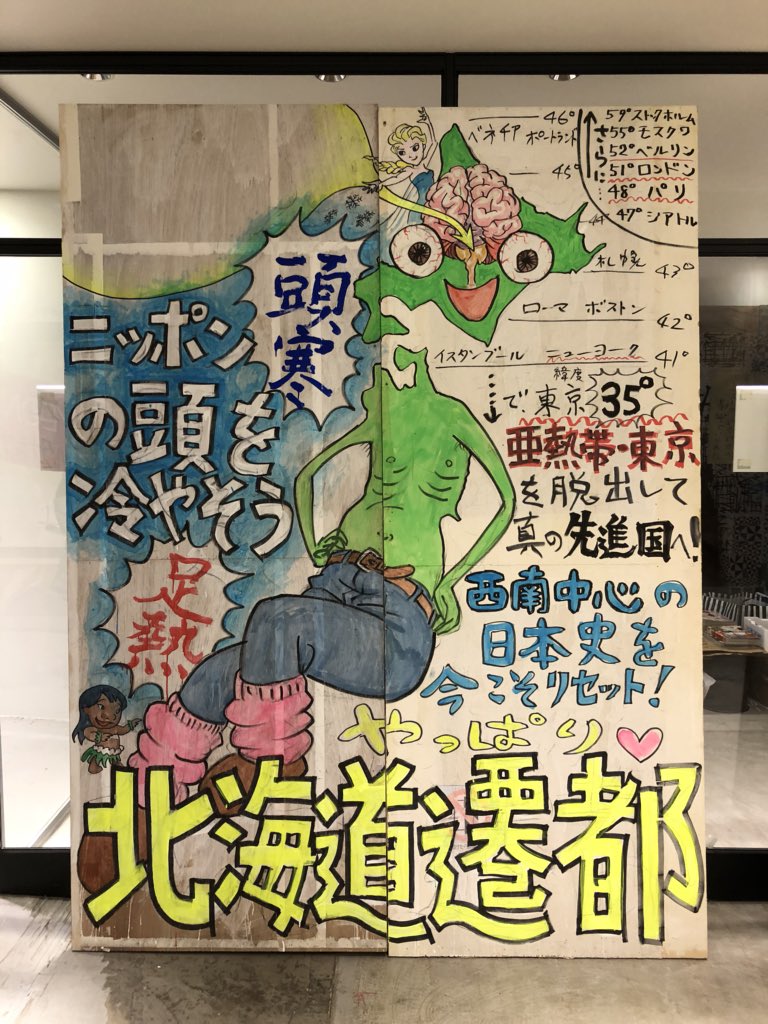 頭寒
ニッポン
の頭を
冷やそう
足熱
46°
ベネチア ポートランド
45°
44°
さらに
59° ストックホルム
55° モスクワ
52° ベルリン
51° ロンドン
48° パリ
47° シアトル
札幌 43°
ローマ ボストン 42°
イスタンブール ニューヨーク 41°
緯度
で、東京35°
亜熱帯・東京
を脱出して
真の先進国へ!
西南中心の
日本史を
今こそリセット!
やっぱり
北海道遷都